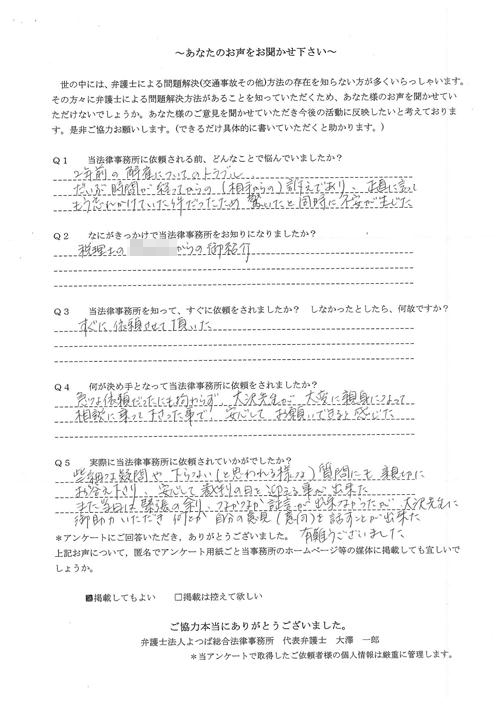 ～あなたのお声をお聞かせ下さい～
世の中には、弁護士による問題解決(交通事故その他)方法の存在を知らない方が多くいらっしゃいます。
その方々に弁護士による問題解決方法があることを知っていただくため、あなた様のお声を聞かせてい
ただけないでしょうか。あなた様のご意見を聞かせていただき今後の活動に反映したいと考えておりま
す。是非ご協力お願いします。(できるだけ具体的に書いていただくと助かります。)
Q1 当法律事務所に依頼される前、どんなことで悩んでいましたか?
2年前の解雇についてのトラブル、
だいぶ時間が経ってからの(相手からの)訴えであり、正直言って
もう忘れかけていた件だったため驚いたと同時に不安が生じた
Q2 なにがきっかけで当法律事務所をお知りになりましたか?
税理士の からの御紹介
Q3 当法律事務所を知って、すぐに依頼をされましたか? しなかったとしたら、何故ですか?
すぐに依頼させて頂いた
Q4 何が決め手となって当法律事務所に依頼をされましたか?
急な依頼だったにも拘わらず、大沢先生が大変に親身になって
相談に乗って下さった事で、安心してお願いできると感じた
Q5 実際に当法律事務所に依頼されていかがでしたか?
些細な疑問や下らない(と思われる様な)質問にも親切に
お答え下り、安心して裁判の日を迎える事が出来た
また当日は緊張の余り、なかなか証言が出来なかったが、大沢先生に
御助力いただき何とか自分の意見(意向)を話すことが出来た
有難うございました
*アンケートにご回答いただき、ありがとうございました。
上記お声について，匿名でアンケート用紙ごと当事務所のホームページ等の媒体に掲載しても宜しいで
しょうか。
■掲載してもよい □掲載は控えて欲しい
ご協力本当にありがとうございました。
弁護士法人よつば総合法律事務所 代表弁護士 大澤 一郎
*当アンケートで取得したご依頼者様の個人情報は厳重に管理します。